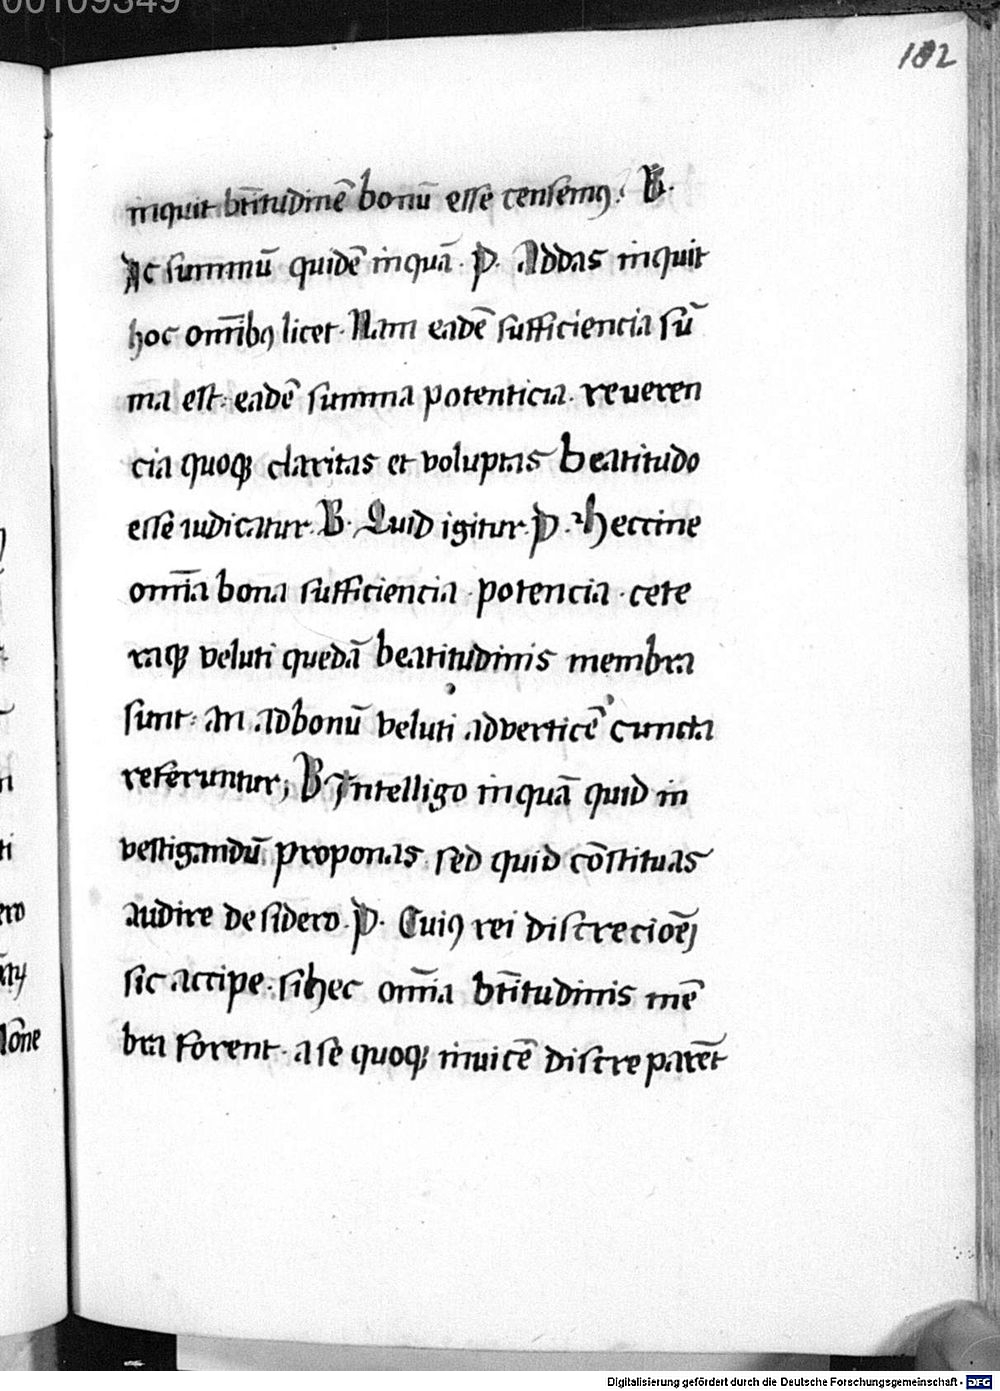 00109349
182
inquit bt̄itudinē bonū esse censemꝯ? B.
Ac summū quidē inquā. P. Addas inquit
hoc om̄ibꝯ licet. Nam eadē sufficiencia sū
ma est: eadē summa potenticia. reveren
cia quoqꝫ claritas et voluptas beatitudo
esse iudicatur. B. Quid igitur. P. Heccine
om̄ia bona sufficiencia potencia. cete
raqꝫ veluti quedā beatitudinis membra
sunt: an ad bonū veluti ad verticē cuncta
referuntur; B Intelligo inquā quid in
vestigandū proponas sed quid cōstituas
audire desidero. P. Cuiꝯ rei discrecioēȷ
sic accipe. si hec om̄ia bt̄itudinis mē
bra forent. a se quoqꝫ invicē discreparēt
Digitalisierung gefördert durch die Deutsche Forschungsgemeinschaft - DFG